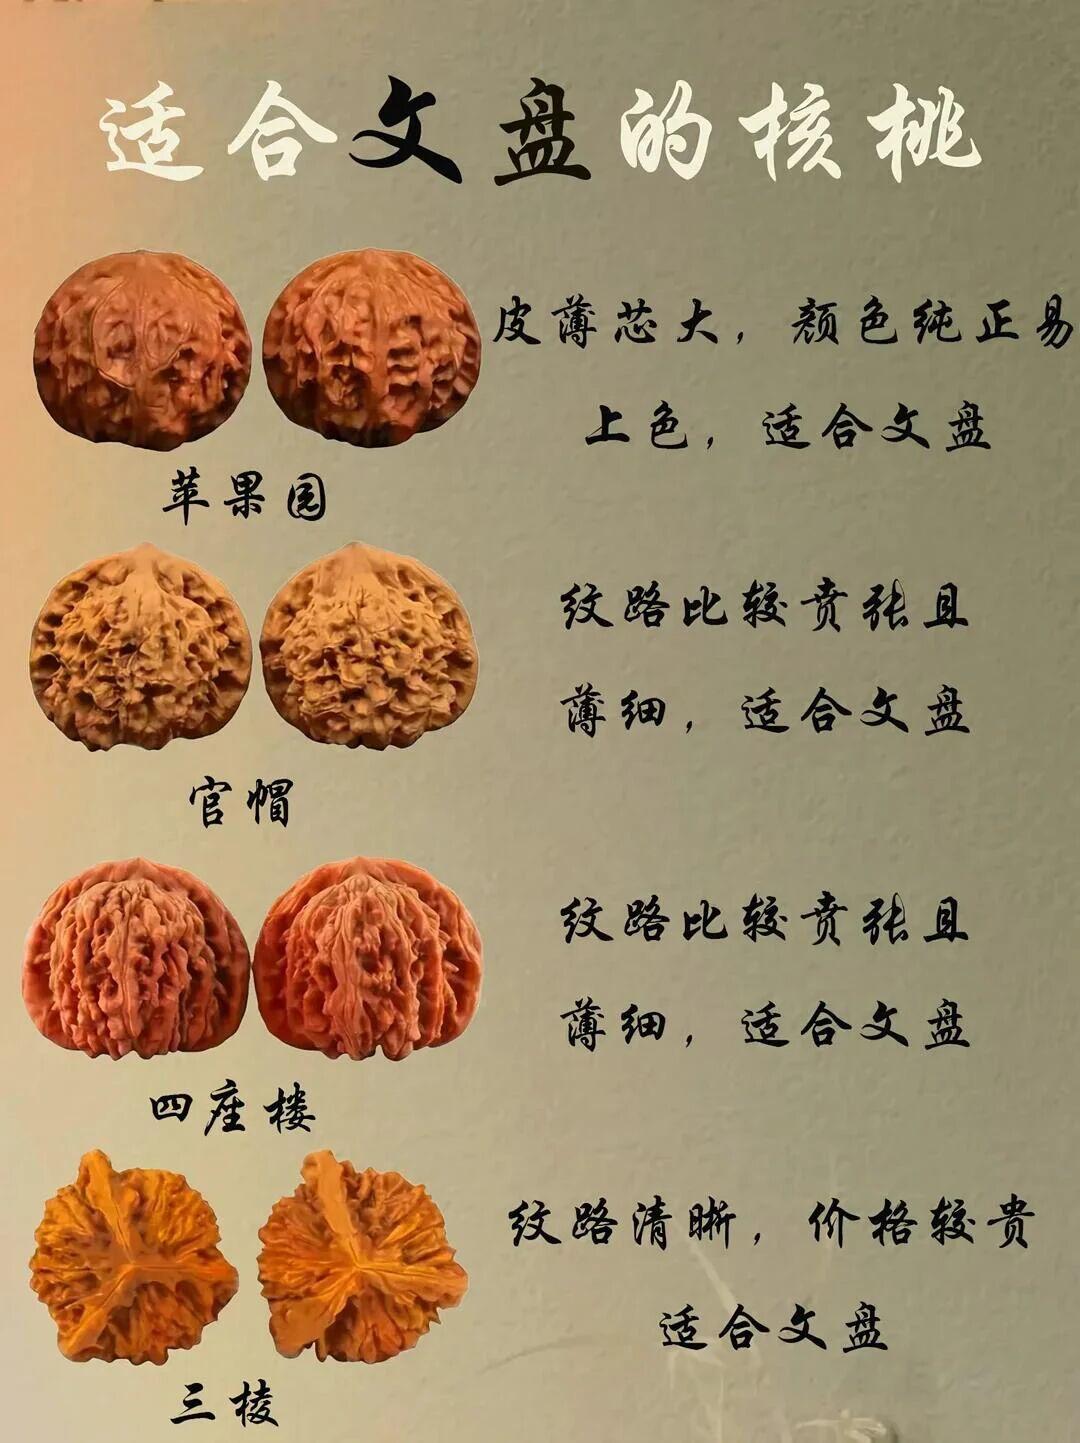 适合文盘的核桃
皮薄芯大，颜色纯正易
上色，适合文盘
苹果园
纹路比较贲张且
薄细，适合文盘
官帽
纹路比较贲张且
薄细，适合文盘
四座楼
纹路清晰，价格较贵
适合文盘
三棱